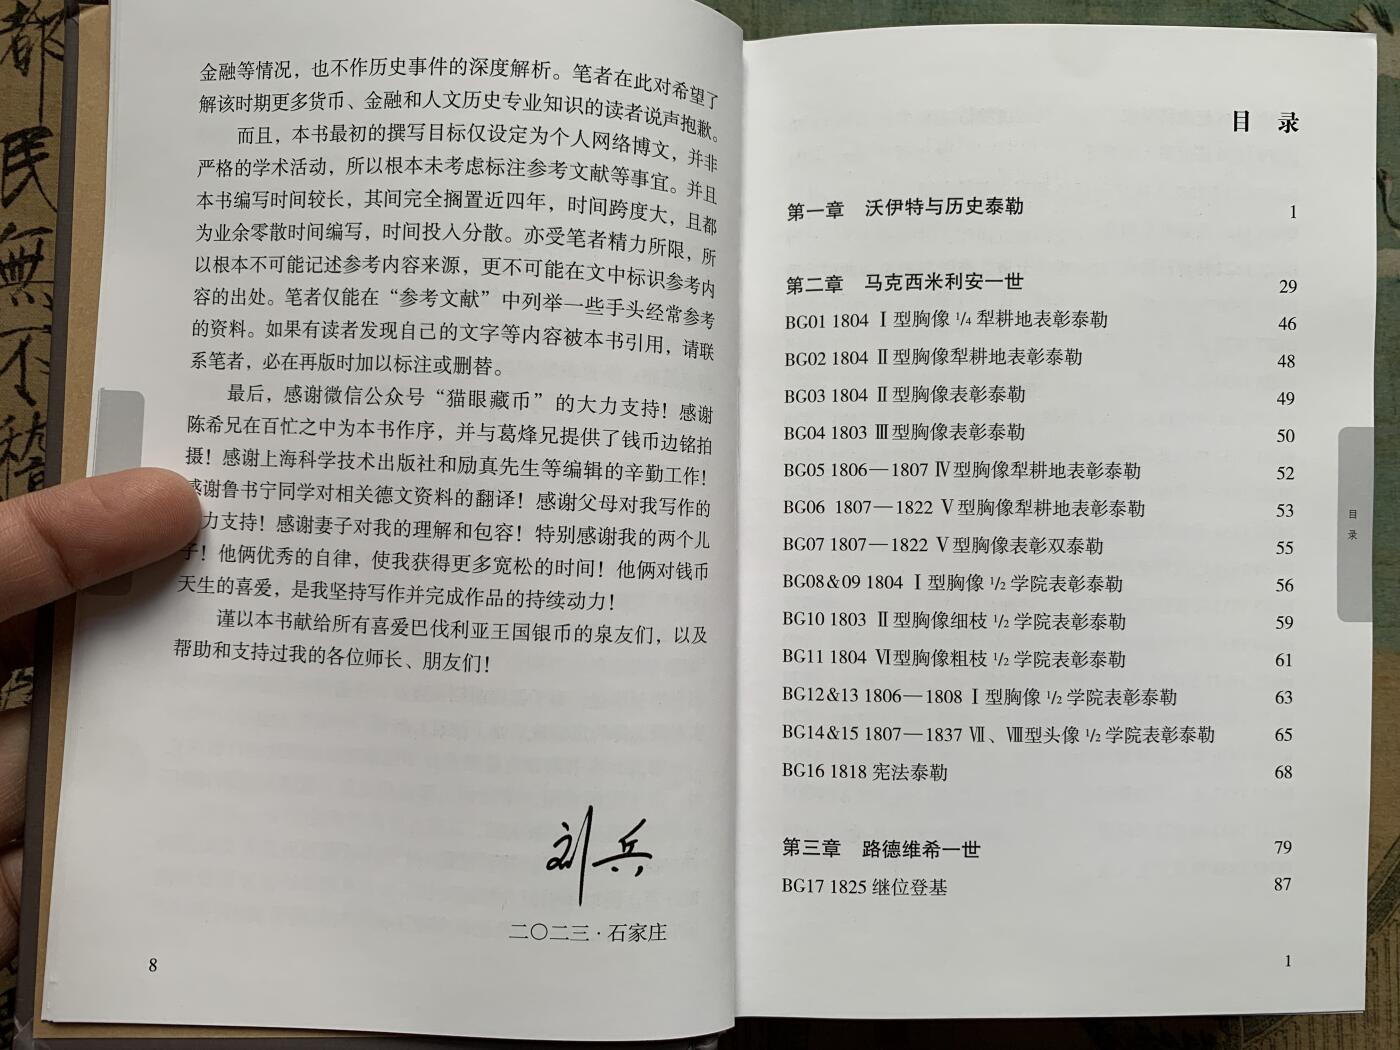 都
民
無
不
金融等情况，也不作历史事件的深度解析。笔者在此对希望了
解该时期更多货币、金融和人文历史专业知识的读者说声抱歉。
而且，本书最初的撰写目标仅设定为个人网络博文，并非
严格的学术活动，所以根本未考虑标注参考文献等事宜。并且
本书编写时间较长，其间完全搁置近四年，时间跨度大，且都
为业余零散时间编写，时间投入分散。亦受笔者精力所限，所
以根本不可能记述参考内容来源，更不可能在文中标识参考内
容的出处。笔者仅能在“参考文献”中列举一些手头经常参考
的资料。如果有读者发现自己的文字等内容被本书引用，请联
系笔者，必在再版时加以标注或删替。
最后，感谢微信公众号“猫眼藏币”的大力支持！感谢
陈希兄在百忙之中为本书作序，并与葛烽兄提供了钱币边铭拍
摄！感谢上海科学技术出版社和励真先生等编辑的辛勤工作！
感谢鲁书宁同学对相关德文资料的翻译！感谢父母对我写作的
力支持！感谢妻子对我的理解和包容！特别感谢我的两个儿
子！他俩优秀的自律，使我获得更多宽松的时间！他俩对钱币
天生的喜爱，是我坚持写作并完成作品的持续动力！
谨以本书献给所有喜爱巴伐利亚王国银币的泉友们，以及
帮助和支持过我的各位师长、朋友们！
刘兵
二〇二三·石家庄
8
目 录
第一章 沃伊特与历史泰勒 1
第二章 马克西米利安一世 29
BG01 1804 Ⅰ型胸像 1/4 犁耕地表彰泰勒 46
BG02 1804 Ⅱ型胸像犁耕地表彰泰勒 48
BG03 1804 Ⅱ型胸像表彰泰勒 49
BG04 1803 Ⅲ型胸像表彰泰勒 50
BG05 1806—1807 Ⅳ型胸像犁耕地表彰泰勒 52
BG06 1807—1822 Ⅴ型胸像犁耕地表彰泰勒 53
BG07 1807—1822 Ⅴ型胸像表彰双泰勒 55
BG08&09 1804 Ⅰ型胸像 1/2 学院表彰泰勒 56
BG10 1803 Ⅱ型胸像细枝 1/2 学院表彰泰勒 59
BG11 1804 Ⅵ型胸像粗枝 1/2 学院表彰泰勒 61
BG12&13 1806—1808 Ⅰ型胸像 1/2 学院表彰泰勒 63
BG14&15 1807—1837 Ⅶ、Ⅷ型头像 1/2 学院表彰泰勒 65
BG16 1818 宪法泰勒 68
第三章 路德维希一世 79
BG17 1825 继位登基 87
目录
1